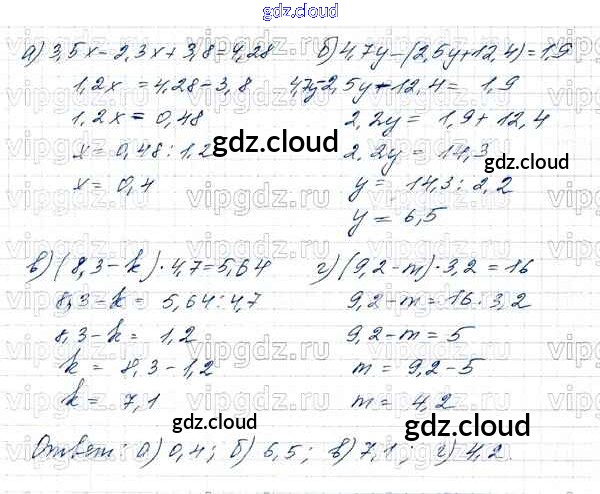 gdz.cloud
а) 3,5x - 2,3x + 3,8 = 4,28
1,2x = 4,28 - 3,8
1,2x = 0,48
x = 0,48 : 1,2
x = 0,4
б) 4,7y - (2,5y + 12,4) = 1,9
4,7y - 2,5y - 12,4 = 1,9
2,2y = 1,9 + 12,4
2,2y = 14,3
y = 14,3 : 2,2
y = 6,5
gdz.cloud
gdz.cloud
в) (8,3 - k) · 4,7 = 5,64
8,3 - k = 5,64 : 4,7
8,3 - k = 1,2
k = 8,3 - 1,2
k = 7,1
г) (9,2 - m) · 3,2 = 16
9,2 - m = 16 : 3,2
9,2 - m = 5
m = 9,2 - 5
m = 4,2
gdz.cloud
gdz.cloud
Ответ: а) 0,4; б) 6,5; в) 7,1; г) 4,2.
vipgdz.ru